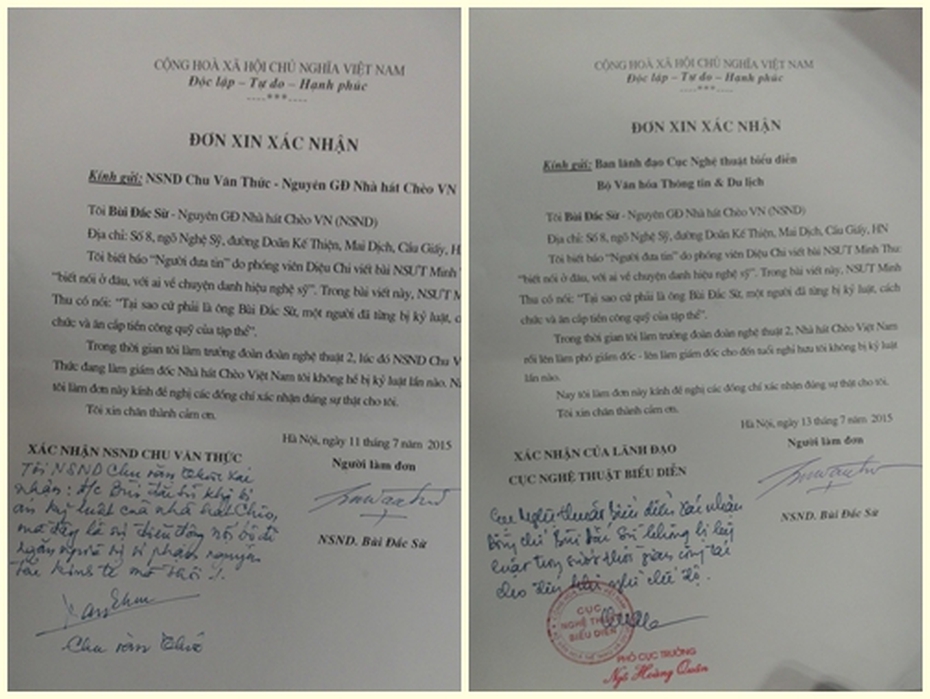 CỘNG HOÀ XÃ HỘI CHỦ NGHĨA VIỆT NAM
Độc lập – Tự do – Hạnh phúc
----***----
ĐƠN XIN XÁC NHẬN
Kính gửi: NSND Chu Văn Thức - Nguyên GĐ Nhà hát Chèo VN
Tôi Bùi Đắc Sừ - Nguyên GĐ Nhà hát Chèo VN (NSND)
Địa chỉ: Số 8, ngõ Nghệ Sỹ, đường Doãn Kế Thiện, Mai Dịch, Cầu Giấy, H
Tôi biết báo “Người đưa tin” do phóng viên Diệu Chi viết bài NSƯT Minh
“biết nói ở đâu, với ai về chuyện danh hiệu nghệ sỹ”. Trong bài viết này, NSƯT M
Thu có nói: “Tại sao cứ phải là ông Bùi Đắc Sừ, một người đã từng bị kỷ luật, c
chức và ăn cắp tiền công quỹ của tập thể”.
Trong thời gian tôi làm trưởng đoàn đoàn nghệ thuật 2, lúc đó NSND Chu V
Thức đang làm giám đốc Nhà hát Chèo Việt Nam tôi không hề bị kỷ luật lần nào. N
tôi làm đơn này kính đề nghị các đồng chí xác nhận đúng sự thật cho tôi.
Tôi xin chân thành cảm ơn.
Hà Nội, ngày 11 tháng 7 năm 2015
XÁC NHẬN NSND CHU VĂN THỨC
Người làm đơn
Tôi NSND Chu văn Thức xác
nhận: Đ/c Bùi đắc Sừ không bị
án kỷ luật của nhà hát Chèo,
mà đây là sự điều động nội bộ để
ngăn ngừa sự vi phạm nguyên
tắc kinh tế mà thôi !.
NSND. Bùi Đắc Sừ
Chu văn Thức
CỘNG HOÀ XÃ HỘI CHỦ NGHĨA VIỆT NAM
Độc lập – Tự do – Hạnh phúc
----***----
ĐƠN XIN XÁC NHẬN
Kính gửi: Ban lãnh đạo Cục Nghệ thuật biểu diễn
Bộ Văn hóa Thông tin & Du lịch
Tôi Bùi Đắc Sừ - Nguyên GĐ Nhà hát Chèo VN (NSND)
Địa chỉ: Số 8, ngõ Nghệ Sỹ, đường Doãn Kế Thiện, Mai Dịch, Cầu Giấy, HN
Tôi biết báo “Người đưa tin” do phóng viên Diệu Chi viết bài NSƯT Minh Thu:
“biết nói ở đâu, với ai về chuyện danh hiệu nghệ sỹ”. Trong bài viết này, NSƯT Minh
Thu có nói: “Tại sao cứ phải là ông Bùi Đắc Sừ, một người đã từng bị kỷ luật, cách
chức và ăn cắp tiền công quỹ của tập thể”.
Trong thời gian tôi làm trưởng đoàn đoàn nghệ thuật 2, Nhà hát Chèo Việt Nam
rồi lên làm phó giám đốc - lên làm giám đốc cho đến tuổi nghỉ hưu tôi không bị kỷ luật
lần nào.
Nay tôi làm đơn này kính đề nghị các đồng chí xác nhận đúng sự thật cho tôi.
Tôi xin chân thành cảm ơn.
Hà Nội, ngày 13 tháng 7 năm 2015
XÁC NHẬN CỦA LÃNH ĐẠO
CỤC NGHỆ THUẬT BIỂU DIỄN
Người làm đơn
Cục Nghệ thuật biểu diễn xác nhận
Đồng chí Bùi Đắc Sừ không bị kỷ
luật trong suốt thời gian công tác
cho đến khi nghỉ chế độ.
NSND. Bùi Đắc Sừ
CỤC
NGHỆ THUẬT
BIỂU DIỄN
PHÓ CỤC TRƯỞNG
Ngô Hoàng Quân